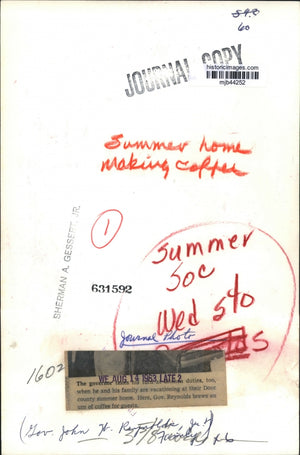 60
historicimages.com
mjb44252
JOURNAL COPY
Summer home
making coffee
SHERMAN A. GESSERT, JR.
1
631592
Summer
Soc
Wed 5/0
Journal Photo
1602
WE. AUG. 14 1963 LATE 2
The governor duties, too,
when he and his family are vacationing at their Door
county summer home. Here, Gov. Reynolds brews an
urn of coffee for guests.
(Gov. John W. Reynolds, Jr.)